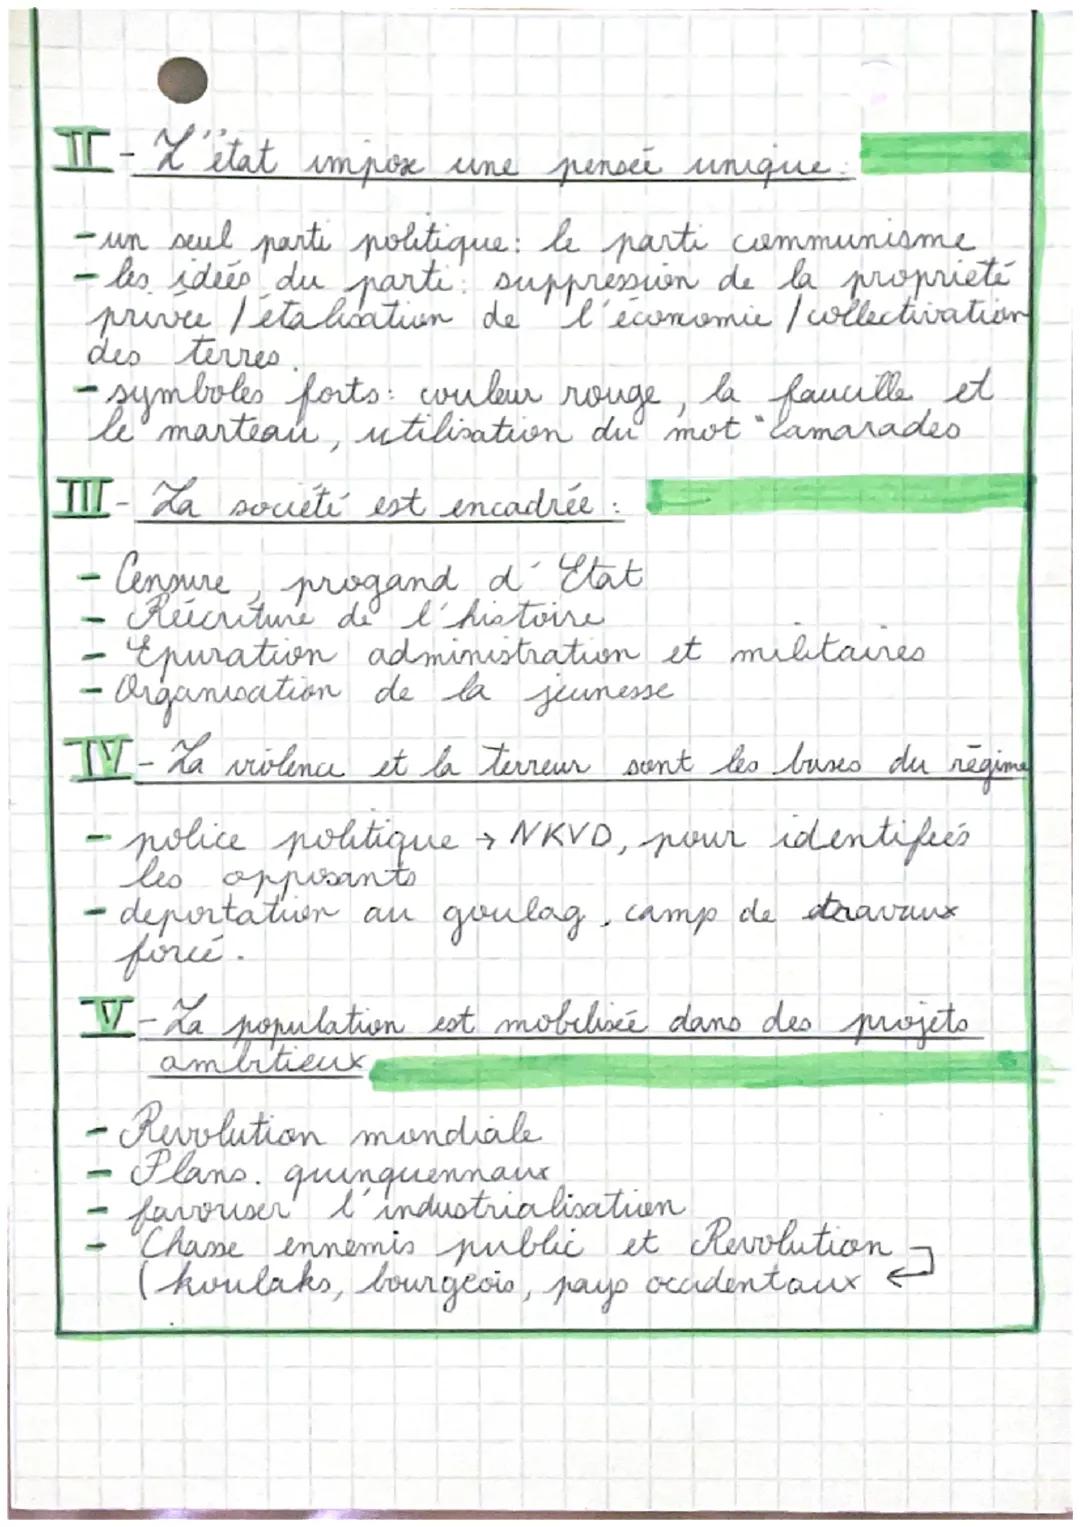 II - L'état impose une pensée unique :
- un seul parti politique : le parti communisme
- les idées du parti : suppression de la propriété
privée / étalisation de l'économie / collectivation
des terres.
- symboles forts : couleur rouge, la faucille et
le marteau, utilisation du mot "camarades
III - La société est encadrée :
- Censure, progand d'Etat
- Réécriture de l'histoire
- Epuration administration et militaires
- Organisation de la jeunesse
IV - La violence et la terreur sont les bases du régime
- police politique → NKVD, pour identifiés
les opposants
- deportation au goulag, camp de travaux
forcé.
V - La population est mobilisée dans des projets
ambitieux
- Revolution mondiale
- Plans. quinquennaux
- favouser l'industrialisation
- Chasse ennemis public et Revolution
(koulaks, bourgeois, pays occidentaux ↵